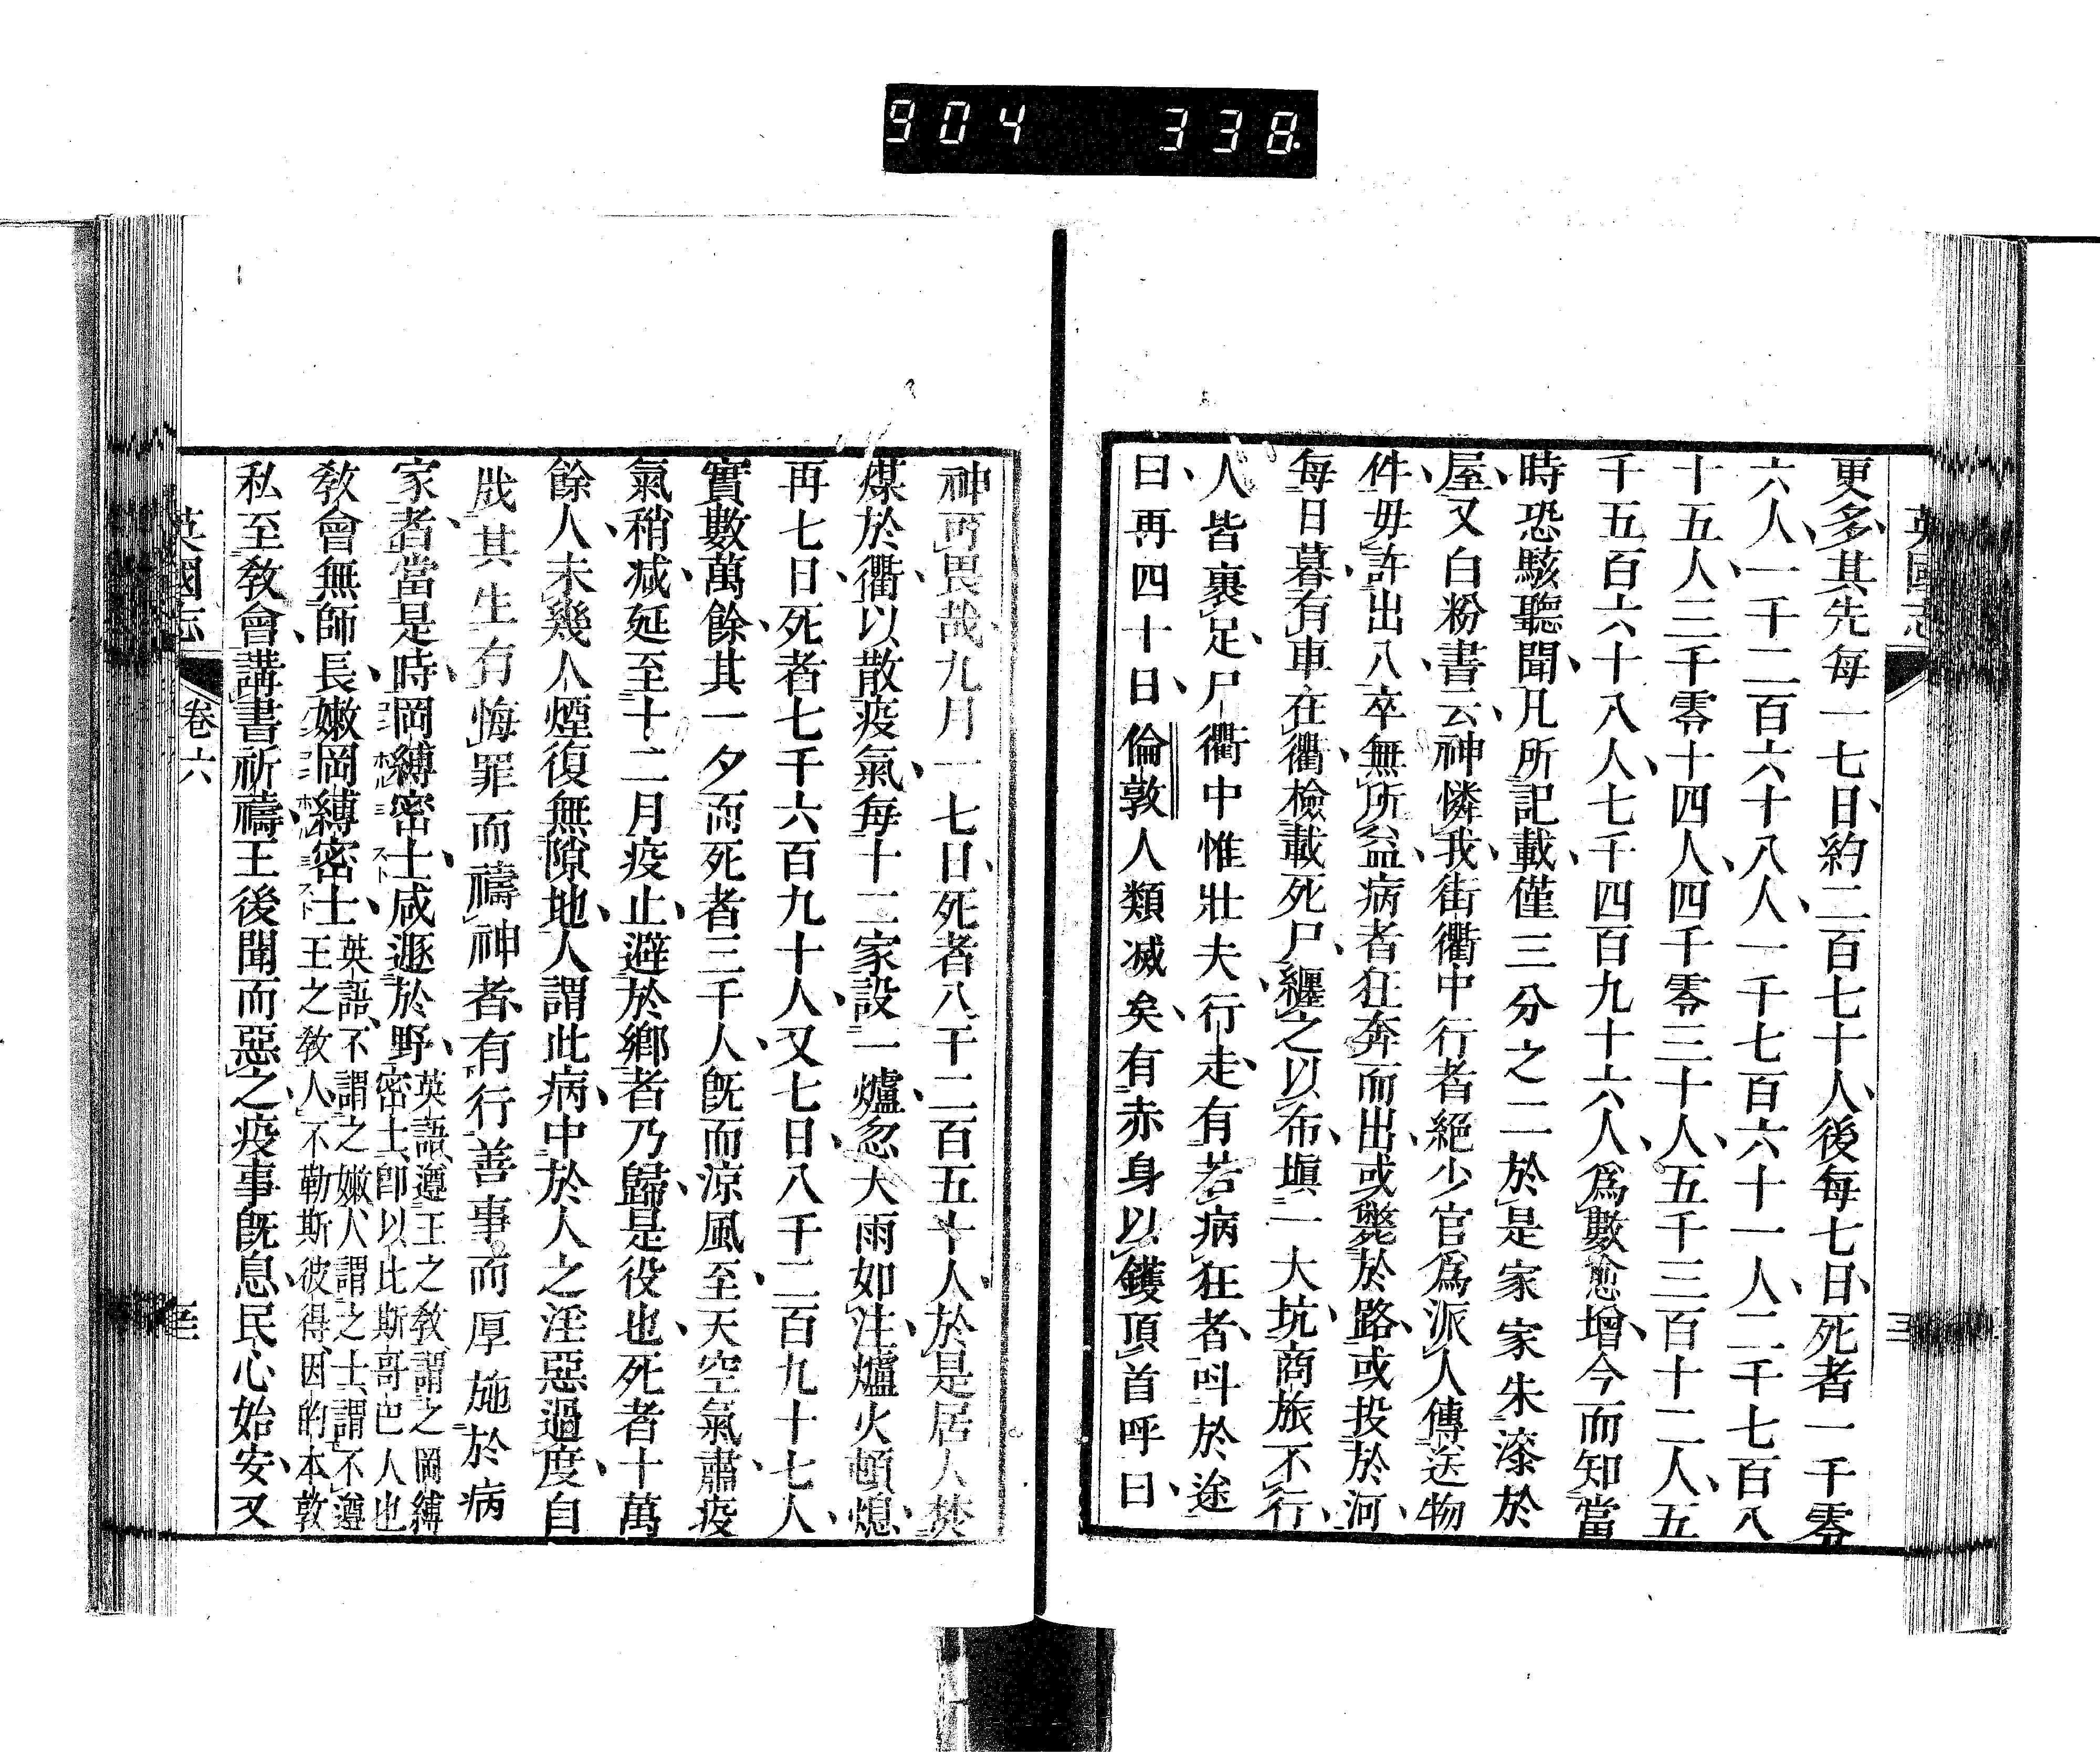 904 338
英國志
更多、其先每一七日、約二百七十人、後每七日、死者一千零
六人、一千二百六十八人、一千七百六十一人、二千七百八
十五人、三千零十四人、四千零三十人、五千三百十二人、五
千五百六十八人、七千四百九十六人、爲數愈增、今而知當
時恐駭聽聞、凡所記載、僅三分之二、於是家家朱漆於
屋、又白粉書云、神憐我、街衢中行者絕少、官爲派人傳送物
件、毋許出入、卒無所益、病者狂奔而出、或斃於路、或投於河、
每日暮、有車在衢、檢載死尸、纏之以布、塡一大坑、商旅不行、
人皆裹足、尸衢中惟壯夫行走、有若病狂者、呌於途
曰、再四十日、倫敦人類滅矣、有赤身以鑊頂首呼曰、
神可畏哉、九月一七日、死者八千二百五十人、於是居人焚
煤於衢、以散疫氣、每十二家設一爐、忽大雨如注、爐火頓熄、
再七日、死者七千六百九十人、又七日、八千二百九十七人、
實數萬餘、其一夕而死者三千人、旣而涼風至、天空氣肅、疫
氣稍減、延至十二月疫止、避於鄉者乃歸、是役也、死者十萬
餘人、未幾人煙復無隙地、人謂此病、中於人之淫惡過度、自
戕其生、有悔罪而禱神者、有行善事而厚施於病
家者、當是時、岡縛密士、咸遯於野、英語、遵王之敎、謂之岡縛
密士、卽以此斯哥巴人也
敎會無師長、嫩岡縛密士、英語、不謂之嫩、人謂之士、謂不遵
王之敎人、不勒斯彼得、因的本敦
私至敎會、講書祈禱、王後聞而惡之、疫事旣息、民心始安、又
英國志 卷六